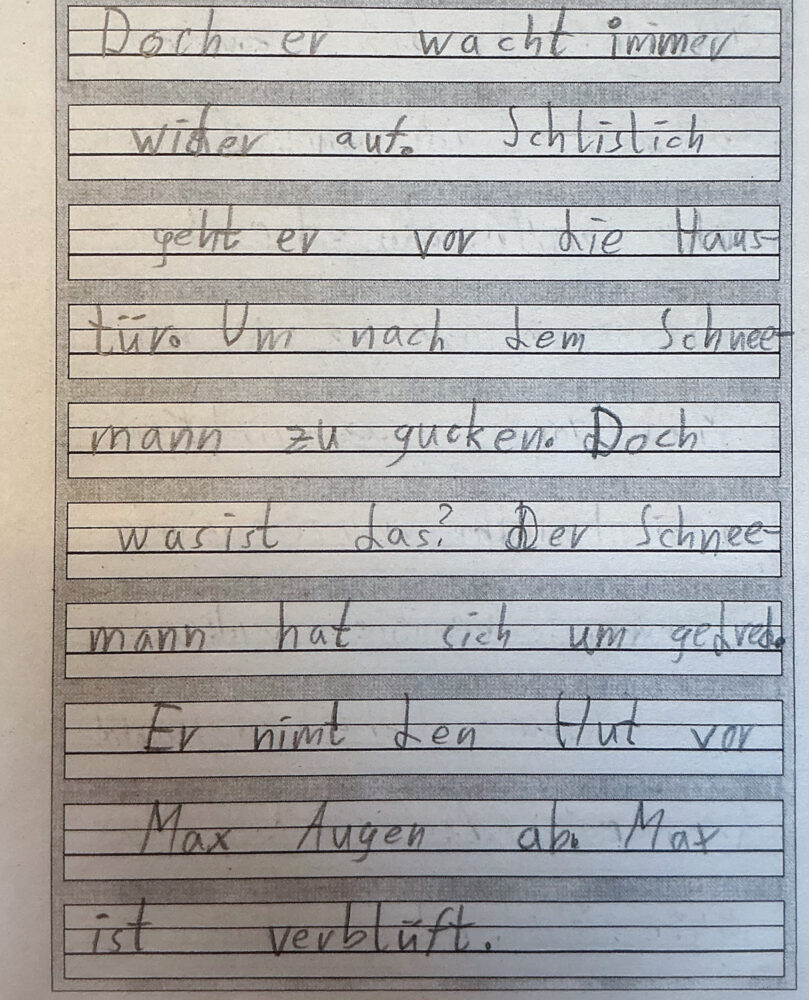 Doch er wacht immer
wider auf. Schlislich
geht er vor die Haus-
tür. Um nach dem Schnee-
mann zu gucken. Doch
was ist das? Der Schnee-
mann hat sich um gedred.
Er nimt den Hut vor
Max Augen ab. Max
ist verblüft.